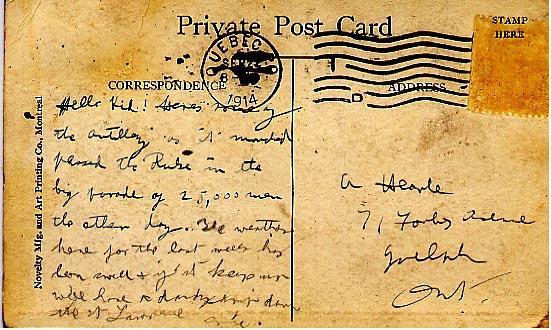 Private Post Card
STAMP
HERE
QUEBEC
SEP 2
8
1914
CORRESPONDENCE
ADDRESS
Novelty Mfg. and Art Printing Co., Montreal
Hello Kid! Heres some of
the artillery as it marched
passed the Duke in the
big parade of 25,000 men
the other day. The weather
here for the last week has
been swell & if it keeps up
will have a dandy trip down
the St Lawrence
A Hearle
71 Forbes Avenue
Guelph
Ont.